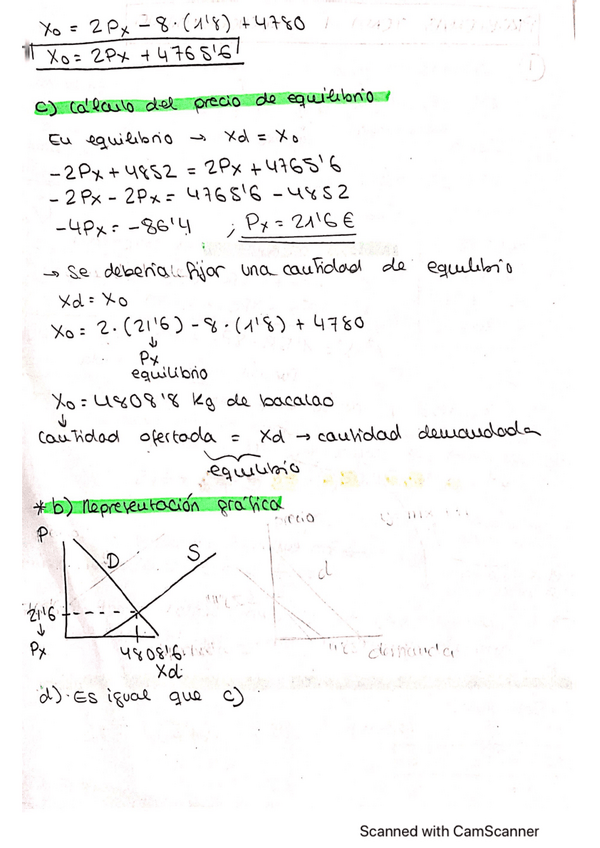 Xo = 2Px - 8·(1'8) + 4780
Xo = 2Px + 4765'6
c) Cálculo del precio de equilibrio
En equilibrio → Xd = Xo
-2Px + 4852 = 2Px + 4765'6
-2Px - 2Px = 4765'6 - 4852
-4Px = -86'4 ; Px = 21'6 €
→ Se debería fijar una cantidad de equilibrio
Xd = Xo
Xo = 2·(21'6) - 8·(1'8) + 4780
↓
Px
equilibrio
Xo = 4808'8 kg de bacalao
↓
Cantidad ofertada = Xd → cantidad demandada
equilibrio
* b) Representación gráfica
P
D
S
21'6
↓
Px
4808'6
Xd
d). Es igual que c)
Scanned with CamScanner